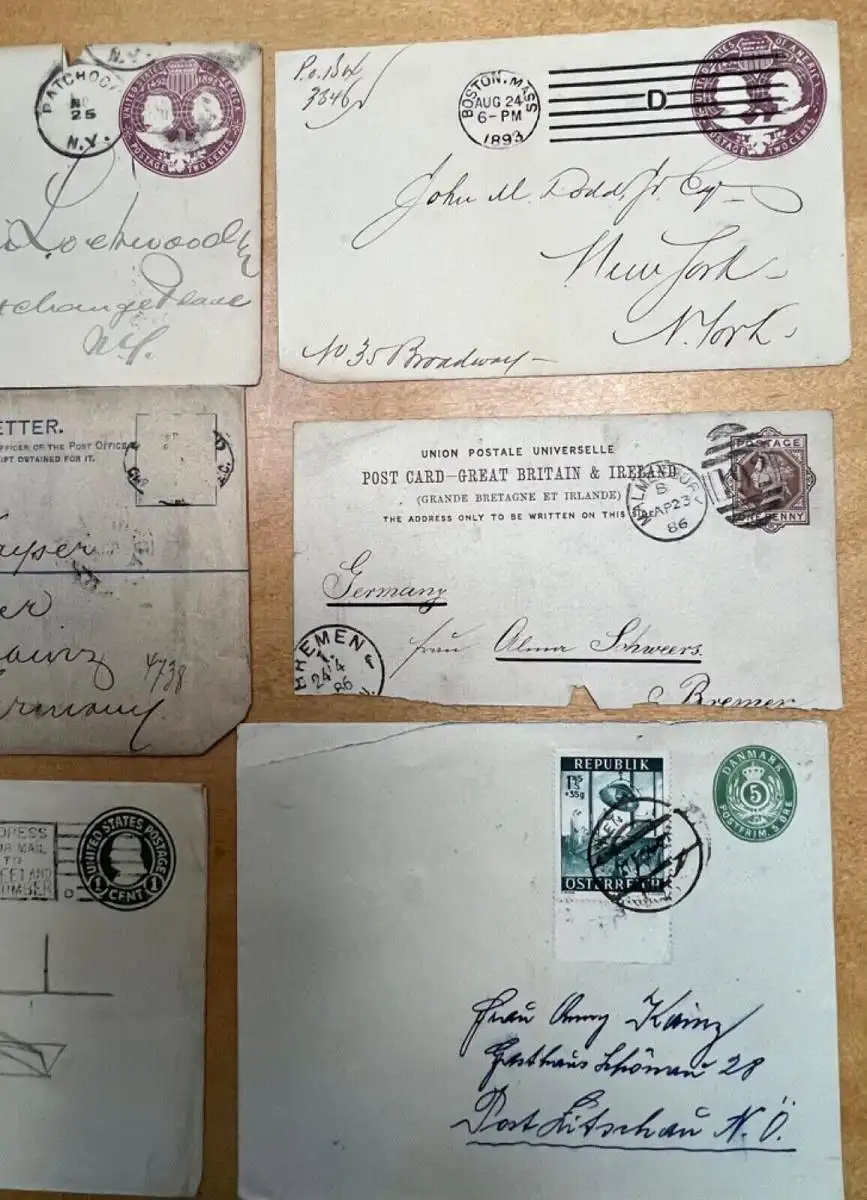 PATCHOG
N.Y.
25
N.Y.
UNITED STATES OF AMERICA
1492 1892
POSTAGE TWO CENTS
Lockwood
xchange Place
N.Y.
P.O. Box
3346
BOSTON, MASS
AUG 24
6-PM
1893
D
UNITED STATES OF AMERICA
POSTAGE TWO CENTS
John M. Dodd, Jr. Esq
New York
N. York
No 35 Broadway
ETTER.
OFFICER OF THE POST OFFICE
IPT OBTAINED FOR IT.
ayser
er
ainz
ermany
4738
UNION POSTALE UNIVERSELLE
POST CARD—GREAT BRITAIN & IRELAND
(GRANDE BRETAGNE ET IRLANDE)
THE ADDRESS ONLY TO BE WRITTEN ON THIS SIDE
MALMESBURY
B
AP 23
86
POSTAGE
ONE PENNY
Germany
Frau Alma Schweers.
Bremen
BREMEN
1.
24/4
86
DRESS
UR MAIL
TO
EET AND
UMBER
UNITED STATES POSTAGE
1 CENT 1
REPUBLIK
+35g
ÖSTERREICH
DANMARK
5
POSTFRIM. 5 ØRE
Frau Anny Kainz
Gasthaus Schönau 28
Post Litschau N.Ö.